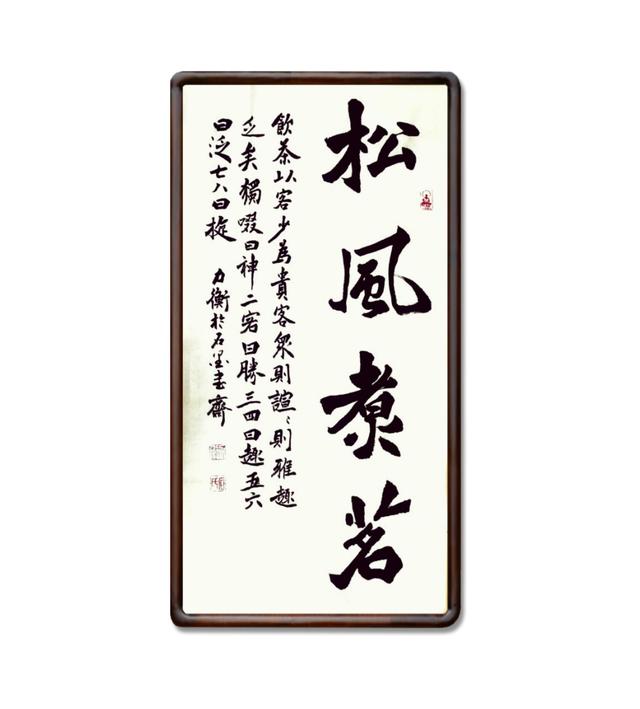 松風煮茗
飲茶以客少為貴客衆則諠〻則雅趣
乏矣獨啜曰神二客曰勝三四曰趣五六
曰泛七八曰施
力衡於石墨書齋